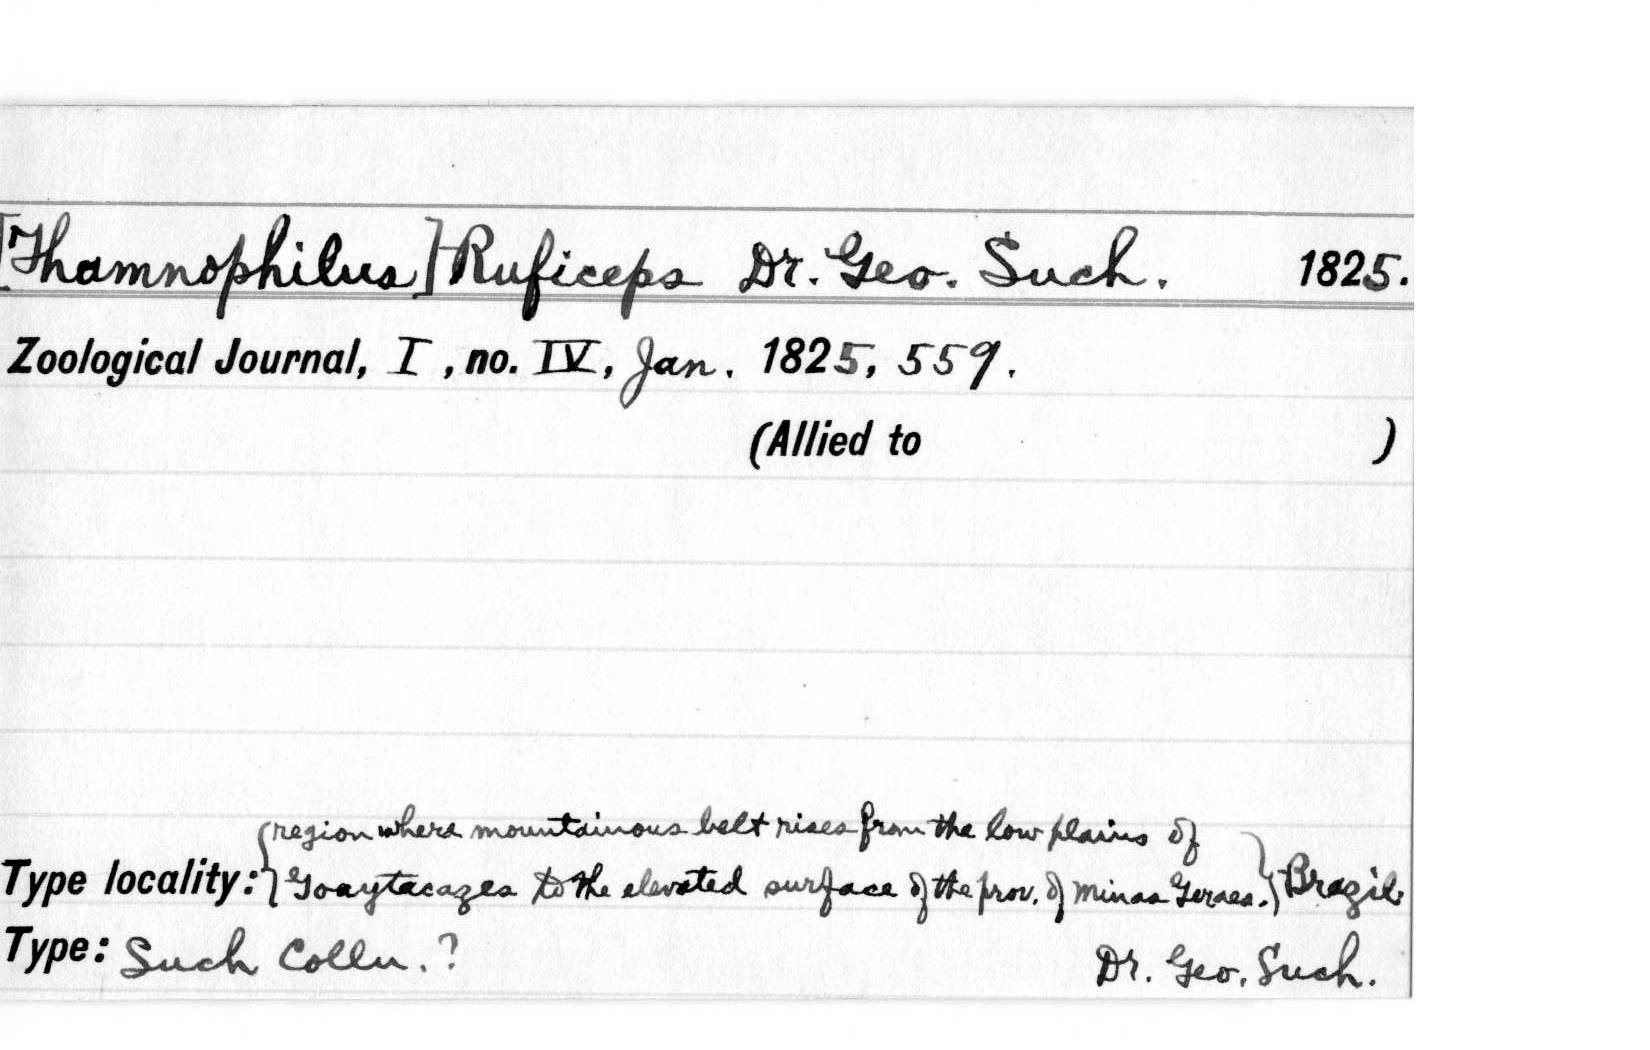 [Thamnophilus] Ruficeps Dr. Geo. Such. 1825.
Zoological Journal, I, no. IV, Jan. 1825, 559.
(Allied to )
region where mountainous belt rises from the low plains of
Type locality: Goaytacazes to the elevated surface of the prov. of Minas Geraes. Brazil
Type: Such Colln. ? Dr. Geo. Such.